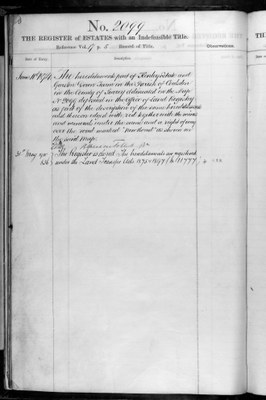 No. 2099
THE REGISTER of ESTATES with an Indefeasible Title.
Reference Vol. 17 p. Record of Title.
Date of Entry.
Description.
Observations.
The hereditaments part of
Garden Farm in the Parish of
in the County of Surrey delineated in the Map
No. 2099 deposited in the Office of Land Registry
as part of the description of the same hereditaments
and thereon edged with red together with the mines
and minerals under the same and a right of way
over the road marked "New Road" as shown on
the said Map.
31st May 1901
The Register is closed. The hereditaments are registered
under the Land Transfer Acts 1875 & 1897